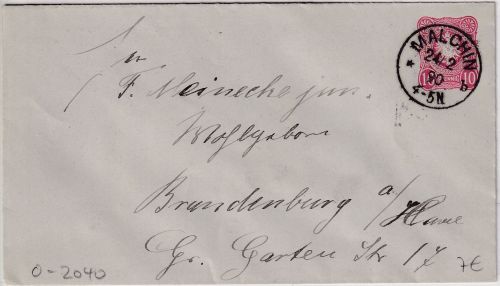 MALCHIN
24 2
80
4-5N. b
10 10
An
F. Meinecke jun.
Wohlgeborn
Brandenburg a/
Havel
Gr. Garten Str 17
0-2040
7€